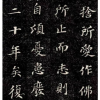 捨所愛作佛
所止而志則
自憂
二十年矣復